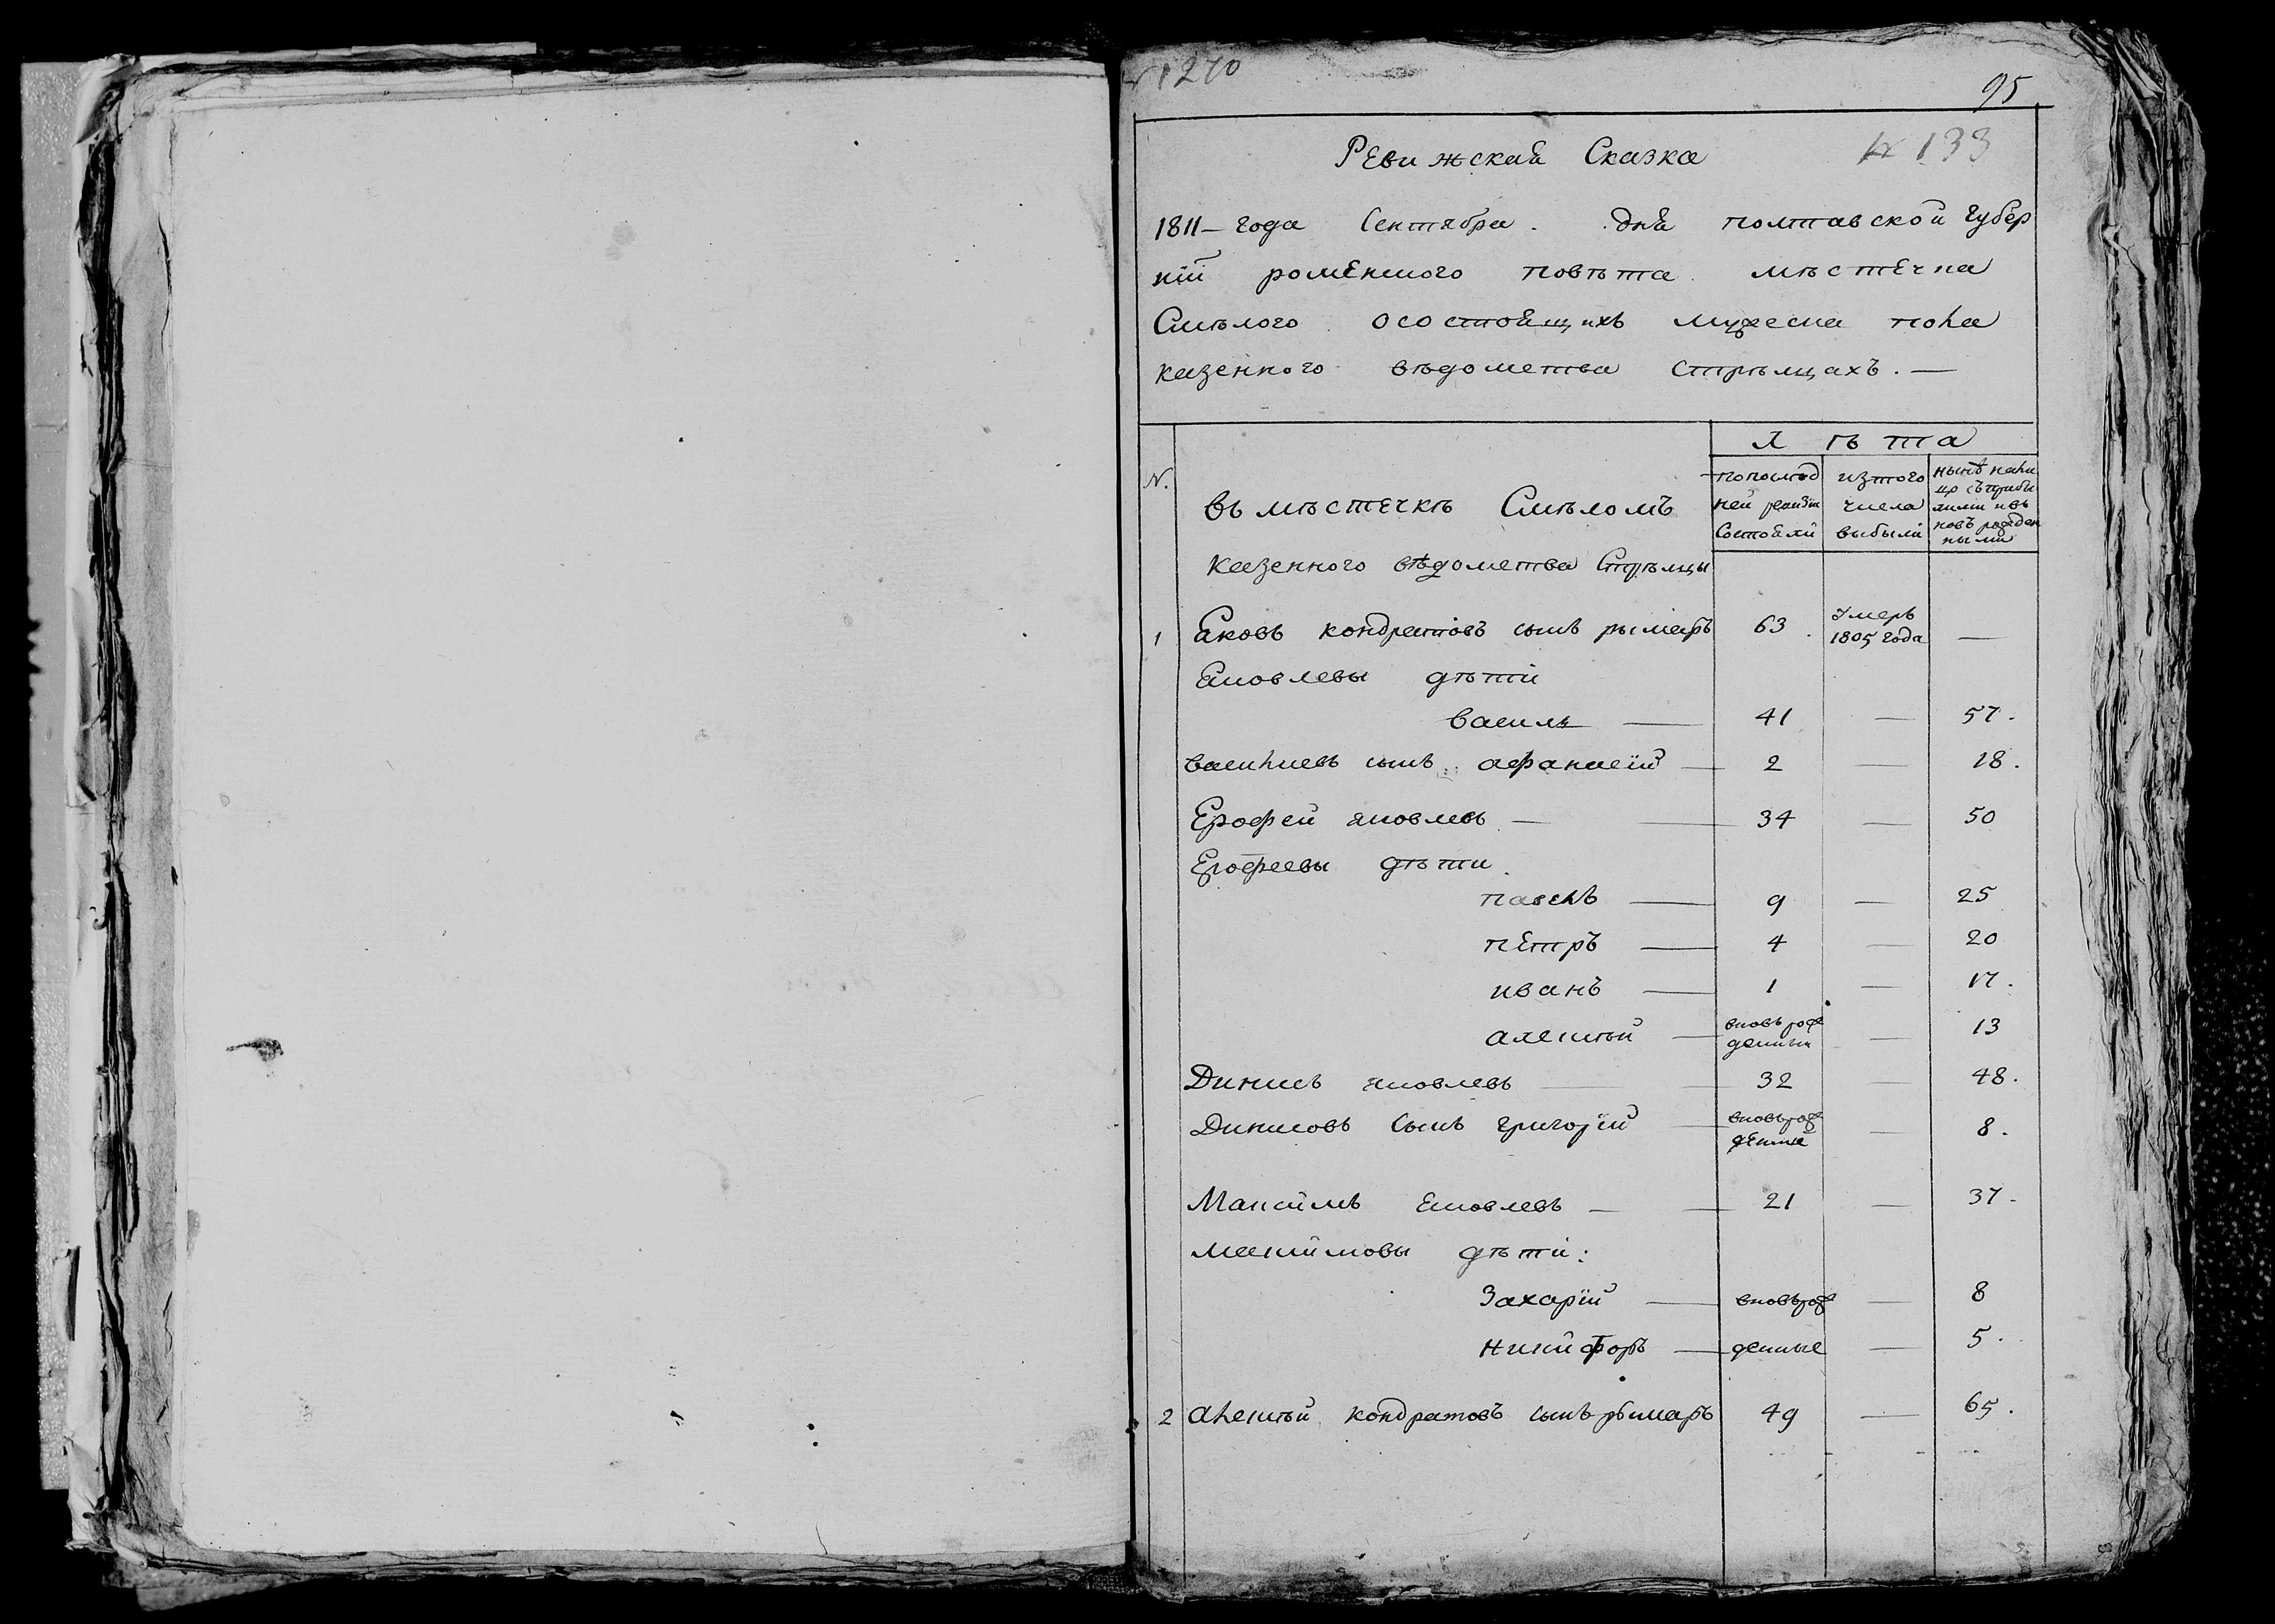 1270
95
№ 133
Ревижская Сказка
1811 – года Сентября . дня полтавской губер
нїи роменского повѣта мѣстечка
Смѣлого осостоящихъ мужеска пола
казенного вѣдомства Стрѣлцахъ. —
Лѣта
№.
вмѣстечкѣ Смѣломъ
казенного вѣдомства Стрѣлцы
попослѣд
ней ревизїи
состояли
изтого
числа
выбыли
нынѣ нали
цо съ прибы
лыми ивъ
новъ рожден
ными
1 Яковъ кондратовъ сынъ рымаръ 63 . Умеръ
1805 года —
Яковлевы дѣти
василь — 41 — 57.
василиевъ сынъ афанасїй — 2 — 18.
Ерофей яковлевъ — 34 — 50
Ерофеевы дѣти
павелъ — 9 — 25
петръ — 4 — 20
иванъ — 1 — 17.
алексѣй — вновь рож
денный — 13
Динисъ яковлевъ — 32 — 48.
Динисовъ сынъ григорїй — вновьрож
денные — 8.
Максимъ Яковлевъ — 21 — 37.
максимовы дѣти:
Захарїй — вновьрож — 8
никифоръ — денные — 5.
2 алексѣй кондратовъ сынъ рымаръ 49 — 65.